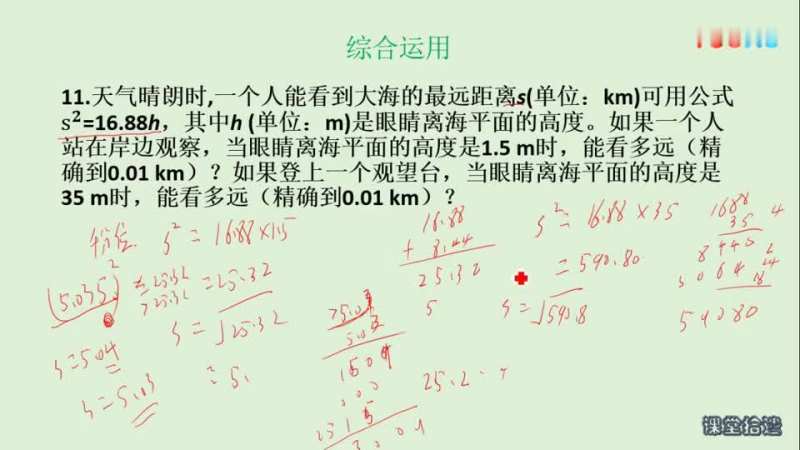 综合运用
11.天气晴朗时,一个人能看到大海的最远距离s(单位：km)可用公式
s²=16.88h，其中h (单位：m)是眼睛离海平面的高度。如果一个人
站在岸边观察，当眼睛离海平面的高度是1.5 m时，能看多远（精
确到0.01 km）？如果登上一个观望台，当眼睛离海平面的高度是
35 m时，能看多远（精确到0.01 km）？
s² = 16.88×1.5
= 25.32
s = √25.32
= 5.
(5.035)²
= 25.32
> 25.32
s = 5.04
s = 5.03
16.88
+ 8.44
25.32
5
s² = 16.88 × 35
= 590.80
s = √590.8
1688
35
8440
5064
59080
25.2
课堂拾遗